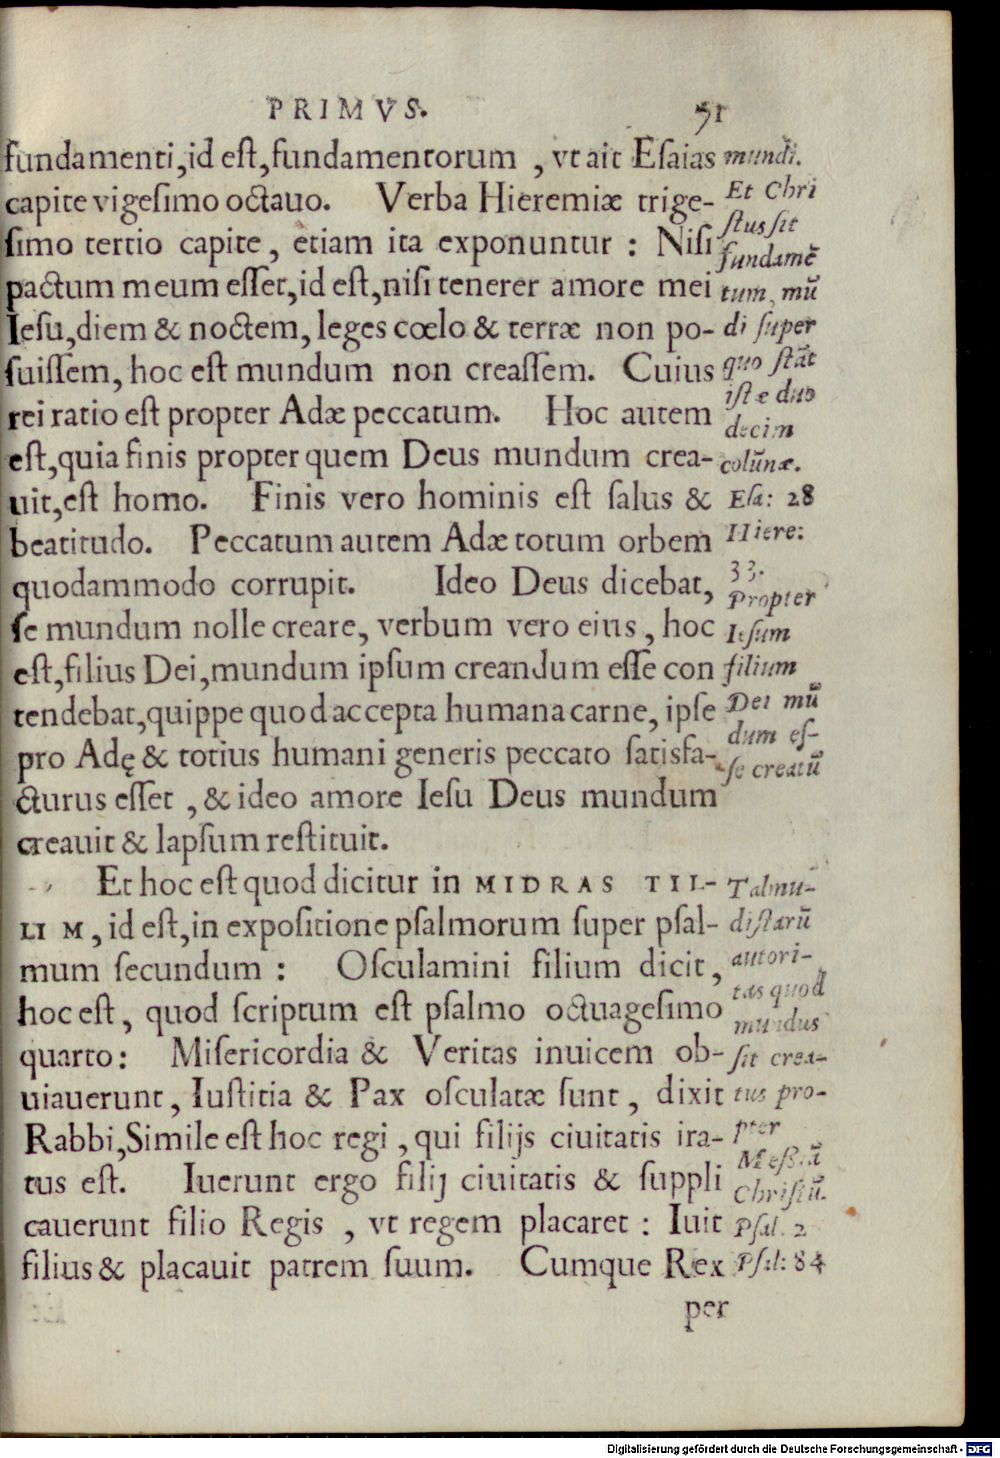 PRIMVS. 51
fundamenti,id eſt,fundamentorum , vt ait Eſaias
capite vigeſimo octauo. Verba Hieremiæ trige-
ſimo tertio capite, etiam ita exponuntur : Niſi
pactum meum eſſet,id eſt,niſi tenerer amore mei
Ieſu,diem & noctem, leges cœlo & terræ non po-
ſuiſſem, hoc eſt mundum non creaſſem. Cuius
rei ratio eſt propter Adæ peccatum. Hoc autem
eſt,quia finis propter quem Deus mundum crea-
uit,eſt homo. Finis vero hominis eſt ſalus &
beatitudo. Peccatum autem Adæ totum orbem
quodammodo corrupit. Ideo Deus dicebat,
ſe mundum nolle creare, verbum vero eius, hoc
eſt,filius Dei,mundum ipſum creandum eſſe con
tendebat,quippe quod accepta humana carne, ipſe
pro Adę & totius humani generis peccato ſatisfa-
cturus eſſet , & ideo amore Ieſu Deus mundum
creauit & lapſum reſtituit.
Et hoc eſt quod dicitur in MIDRAS TIL-
LIM, id eſt,in expoſitione pſalmorum ſuper pſal-
mum ſecundum : Oſculamini filium dicit,
hoc eſt, quod ſcriptum eſt pſalmo octuageſimo
quarto: Miſericordia & Veritas inuicem ob-
uiauerunt, Iuſtitia & Pax oſculatæ ſunt, dixit
Rabbi,Simile eſt hoc regi, qui filijs ciuitatis ira-
tus eſt. Iuerunt ergo filij ciuitatis & ſuppli
cauerunt filio Regis , vt regem placaret : Iuit
filius & placauit patrem ſuum. Cumque Rex
per
mundi.
Et Chri
ſtus ſit
fundamē
tum, mū
di ſuper
quo ſtāt
iſtæ duo
decim
colūnæ.
Eſa: 28
Hiere:
33.
Propter
Ieſum
filium
Dei mū
dum eſ-
ſe creatū
Talmu-
diſtarū
autori-
tas quod
mundus
ſit crea-
tus pro-
pter
Meſſiā
Chriſtū.
Pſal. 2
Pſal: 84
Digitalisierung gefördert durch die Deutsche Forschungsgemeinschaft - DFG